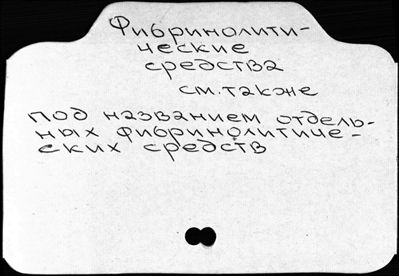 Фибринолити-
ческие
средства
см. также
под названием отдель-
ных фибринолитиче-
ских средств